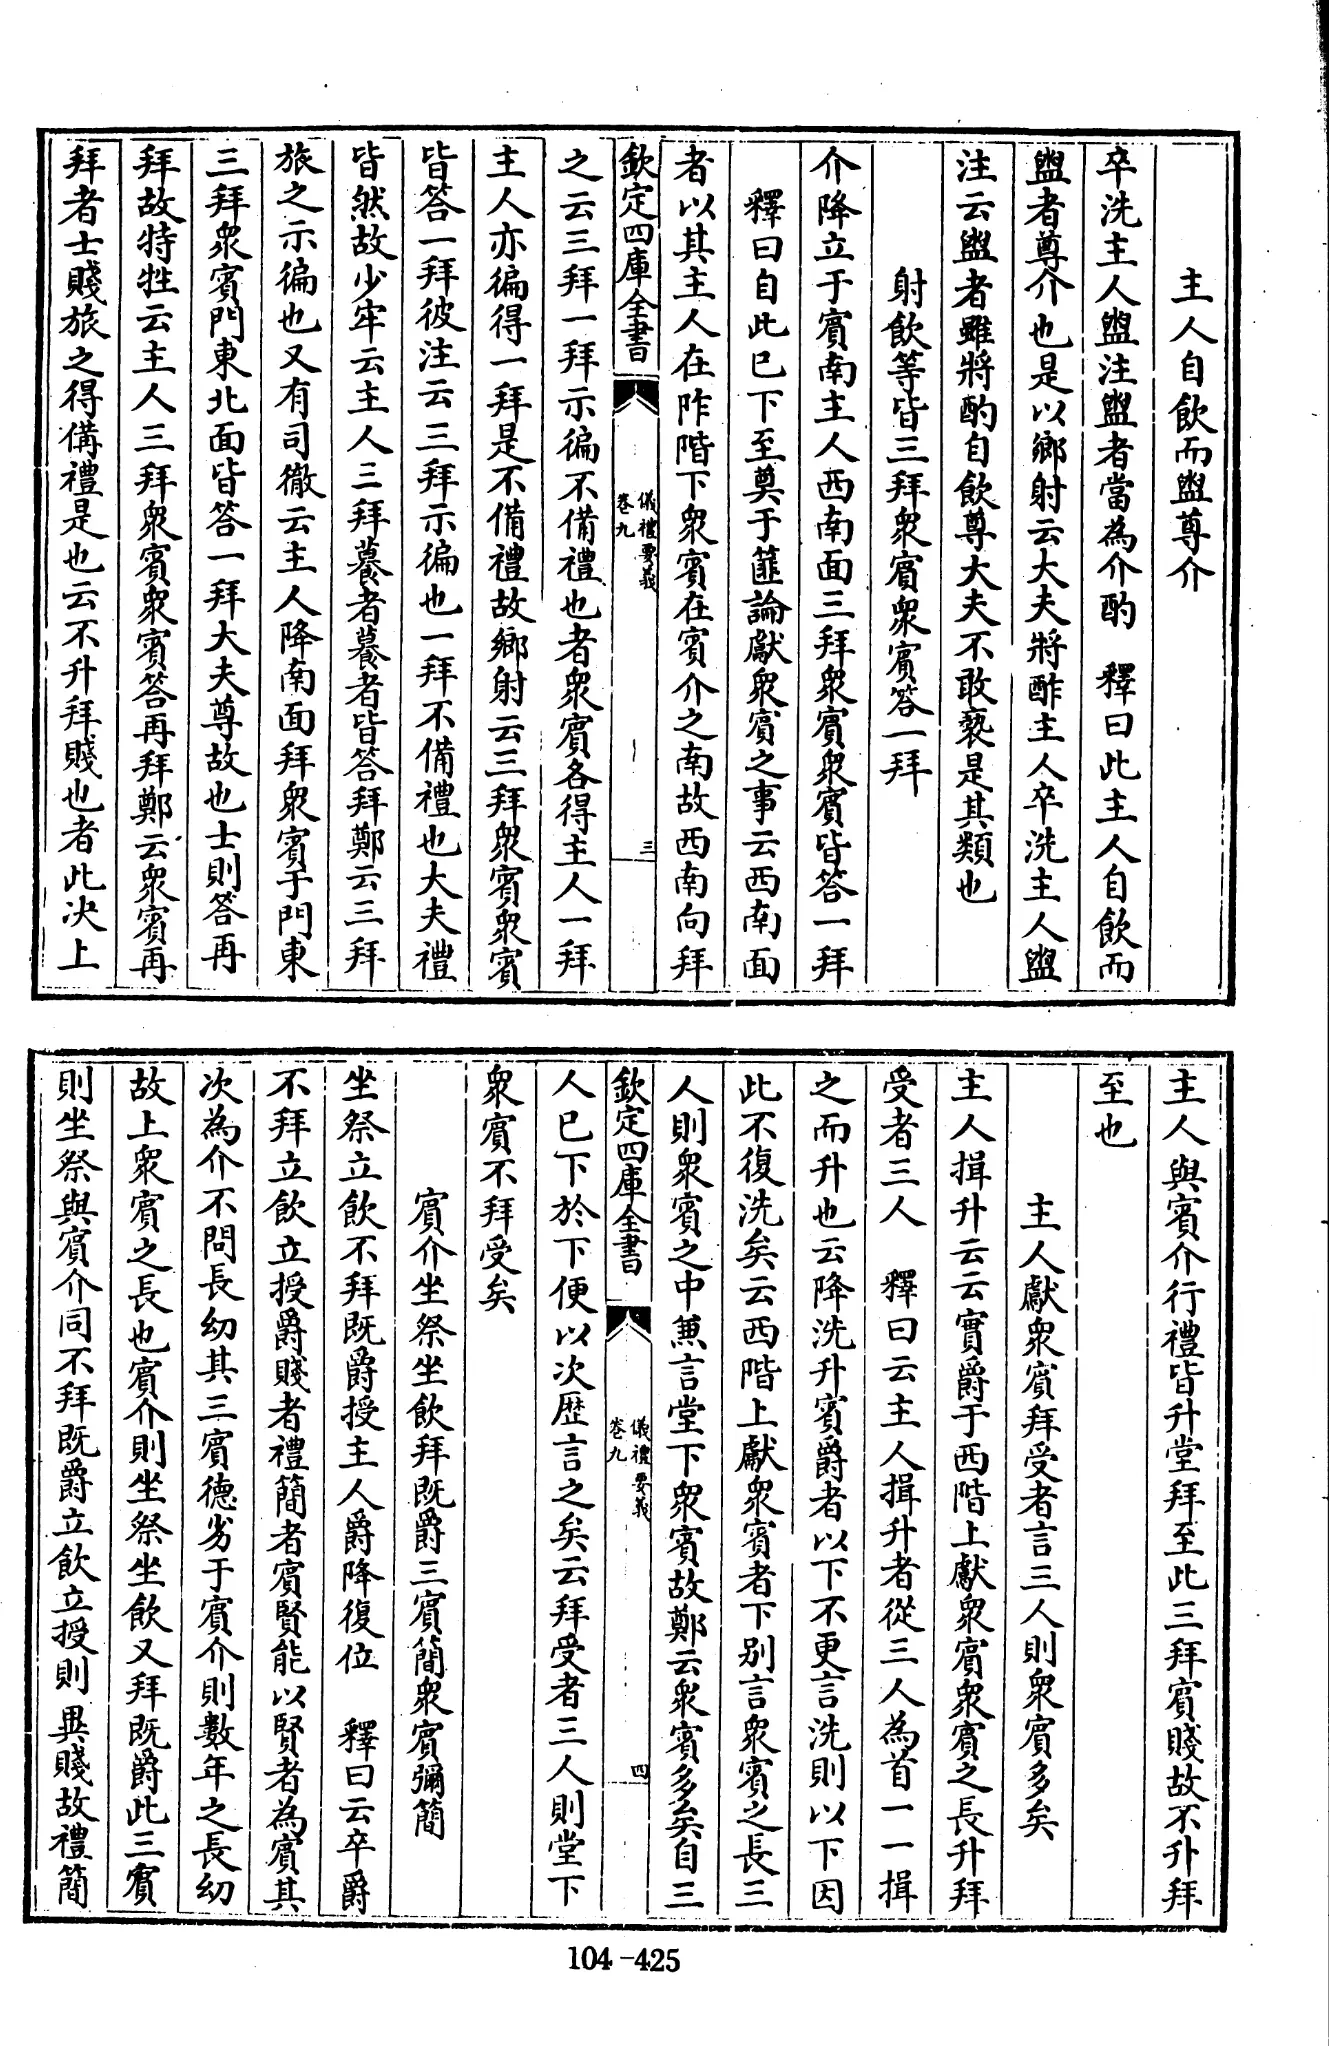 主人自飲而盥尊介
卒洗主人盥注盥者當為介酌　釋曰此主人自飲而
盥者尊介也是以鄉射云大夫將酢主人卒洗主人盥
注云盥者雖將酌自飲尊大夫不敢褻是其類也
射飲等皆三拜衆賓衆賓答一拜
介降立于賓南主人西南面三拜衆賓衆賓皆答一拜
釋曰自此已下至奠于篚論獻衆賓之事云西南面
者以其主人在阼階下衆賓在賓介之南故西南向拜
欽定四庫全書
儀禮要義
卷九
三
之云三拜一拜示徧不備禮也者衆賓各得主人一拜
主人亦徧得一拜是不備禮故鄉射云三拜衆賓衆賓
皆答一拜彼注云三拜示徧也一拜不備禮也大夫禮
皆然故少牢云主人三拜養者養者皆答拜鄭云三拜
旅之示徧也又有司徹云主人降南面拜衆賓于門東
三拜衆賓門東北面皆答一拜大夫尊故也士則答再
拜故特牲云主人三拜衆賓衆賓答再拜鄭云衆賓再
拜者士賤旅之得備禮是也云不升拜賤也者此决上
主人與賓介行禮皆升堂拜至此三拜賓賤故不升拜
至也
主人獻衆賓拜受者言三人則衆賓多矣
主人揖升云云實爵于西階上獻衆賓衆賓之長升拜
受者三人　釋曰云主人揖升者從三人為首一一揖
之而升也云降洗升賓爵者以下不更言洗則以下因
此不復洗矣云西階上獻衆賓者下别言衆賓之長三
人則衆賓之中兼言堂下衆賓故鄭云衆賓多矣自三
欽定四庫全書
儀禮要義
卷九
四
人已下於下便以次歷言之矣云拜受者三人則堂下
衆賓不拜受矣
賓介坐祭坐飲拜既爵三賓簡衆賓彌簡
坐祭立飲不拜既爵授主人爵降復位　釋曰云卒爵
不拜立飲立授爵賤者禮簡者賓賢能以賢者為賓其
次為介不問長幼其三賓德劣于賓介則數年之長幼
故上衆賓之長也賓介則坐祭坐飲又拜既爵此三賓
則坐祭與賓介同不拜既爵立飲立授則異賤故禮簡
104-425